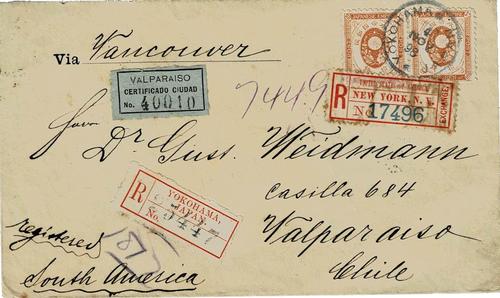 Via Vancouver
JAPANESE EMPIRE
YOKOHAMA
VALPARAISO
CERTIFICADO CIUDAD
No. 40010
744.9
R
NEW YORK, N. Y.
No 17496
EXCHANGE
Herrn
Dr Gust. Weidmann
Casilla 684
Valparaiso
Chile
R
YOKOHAMA,
JAPAN.
No.
registered
South America